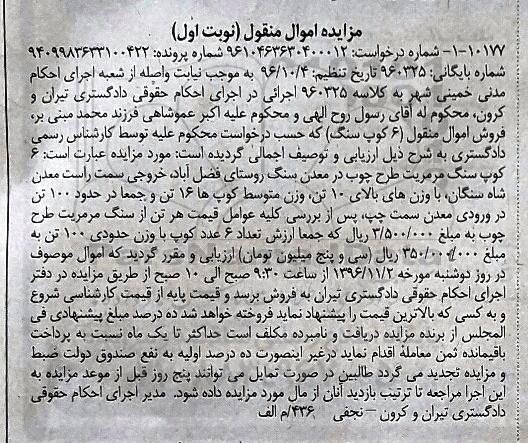 مزایده اموال منقول (نوبت اول)
۱-۱۰۱۷۷- شماره درخواست: ۹۶۱۰۴۶۳۶۳۰۴۰۰۰۱۲ شماره پرونده: ۹۴۰۹۹۸۳۶۳۳۱۰۰۴۲۲
شماره بایگانی: ۹۶۰۳۲۵ تاریخ تنظیم: ۹۶/۱۰/۴ به موجب نیابت واصله از شعبه اجرای احکام
مدنی خمینی شهر به کلاسه ۹۶۰۳۲۵ اجرائی در اجرای احکام حقوقی دادگستری تیران و
کرون، محکوم له آقای رسول روح الهی و محکوم علیه اکبر عموشاهی فرزند محمد مبنی بر،
فروش اموال منقول (۶ کوپ سنگ) که حسب درخواست محکوم علیه توسط کارشناس رسمی
دادگستری به شرح ذیل ارزیابی و توصیف اجمالی گردیده است: مورد مزایده عبارت است: ۶
کوپ سنگ مرمریت طرح چوب در معدن سنگ روستای فضل آباد، خروجی سمت راست معدن
شاه سنگان، با وزن های بالای ۱۰ تن، وزن متوسط کوپ ها ۱۶ تن و جمعا در حدود ۱۰۰ تن
در ورودی معدن سمت چپ، پس از بررسی کلیه عوامل قیمت هر تن از سنگ مرمریت طرح
چوب به مبلغ ۳/۵۰۰/۰۰۰ ریال که جمعا ارزش تعداد ۶ عدد کوپ با وزن حدودی ۱۰۰ تن به
مبلغ ۳۵۰/۰۰۰/۰۰۰ ریال (سی و پنج میلیون تومان) ارزیابی و مقرر گردید که اموال موصوف
در روز دوشنبه مورخه ۱۳۹۶/۱۱/۲ از ساعت ۹:۳۰ صبح الی ۱۰ صبح از طریق مزایده در دفتر
اجرای احکام حقوقی دادگستری تیران به فروش برسد و قیمت پایه از قیمت کارشناسی شروع
و به کسی که بالاترین قیمت را پیشنهاد نماید فروخته خواهد شد ده درصد مبلغ پیشنهادی فی
المجلس از برنده مزایده دریافت و نامبرده مکلف است حداکثر تا یک ماه نسبت به پرداخت
باقیمانده ثمن معاملۀ اقدام نماید درغیر اینصورت ده درصد اولیه به نفع صندوق دولت ضبط
و مزایده تجدید می گردد طالبین در صورت تمایل می توانند پنج روز قبل از موعد مزایده به
این اجرا مراجعه تا ترتیب بازدید آنان از مال مورد مزایده داده شود. مدیر اجرای احکام حقوقی
دادگستری تیران و کرون – نجفی ۴۳۶/م الف